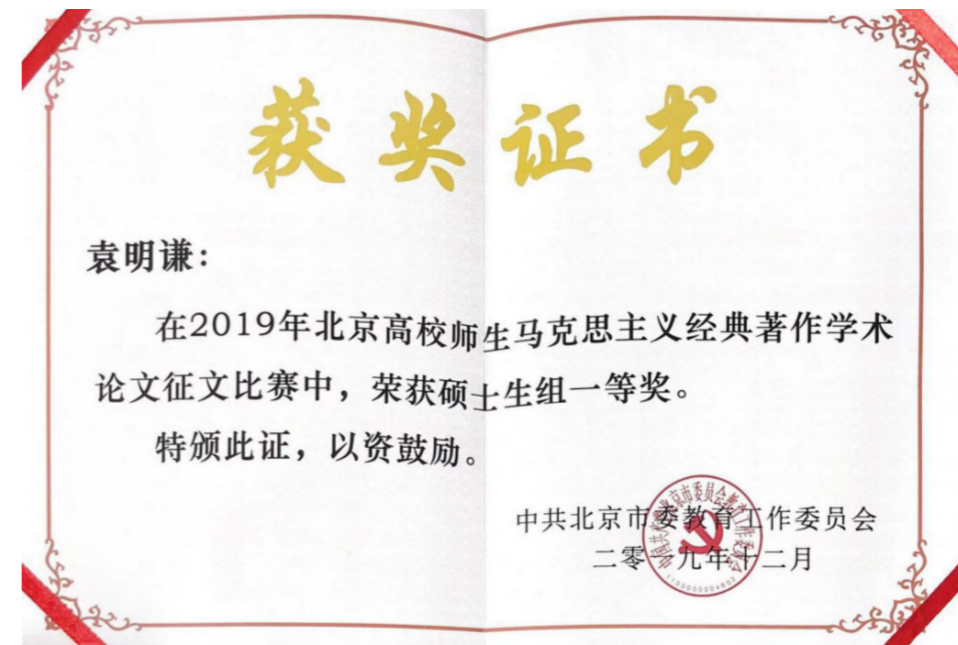 获奖证书
袁明谦：
在2019年北京高校师生马克思主义经典著作学术
论文征文比赛中，荣获硕士生组一等奖。
特颁此证，以资鼓励。
中共北京市委教育工作委员会
二零一九年十二月